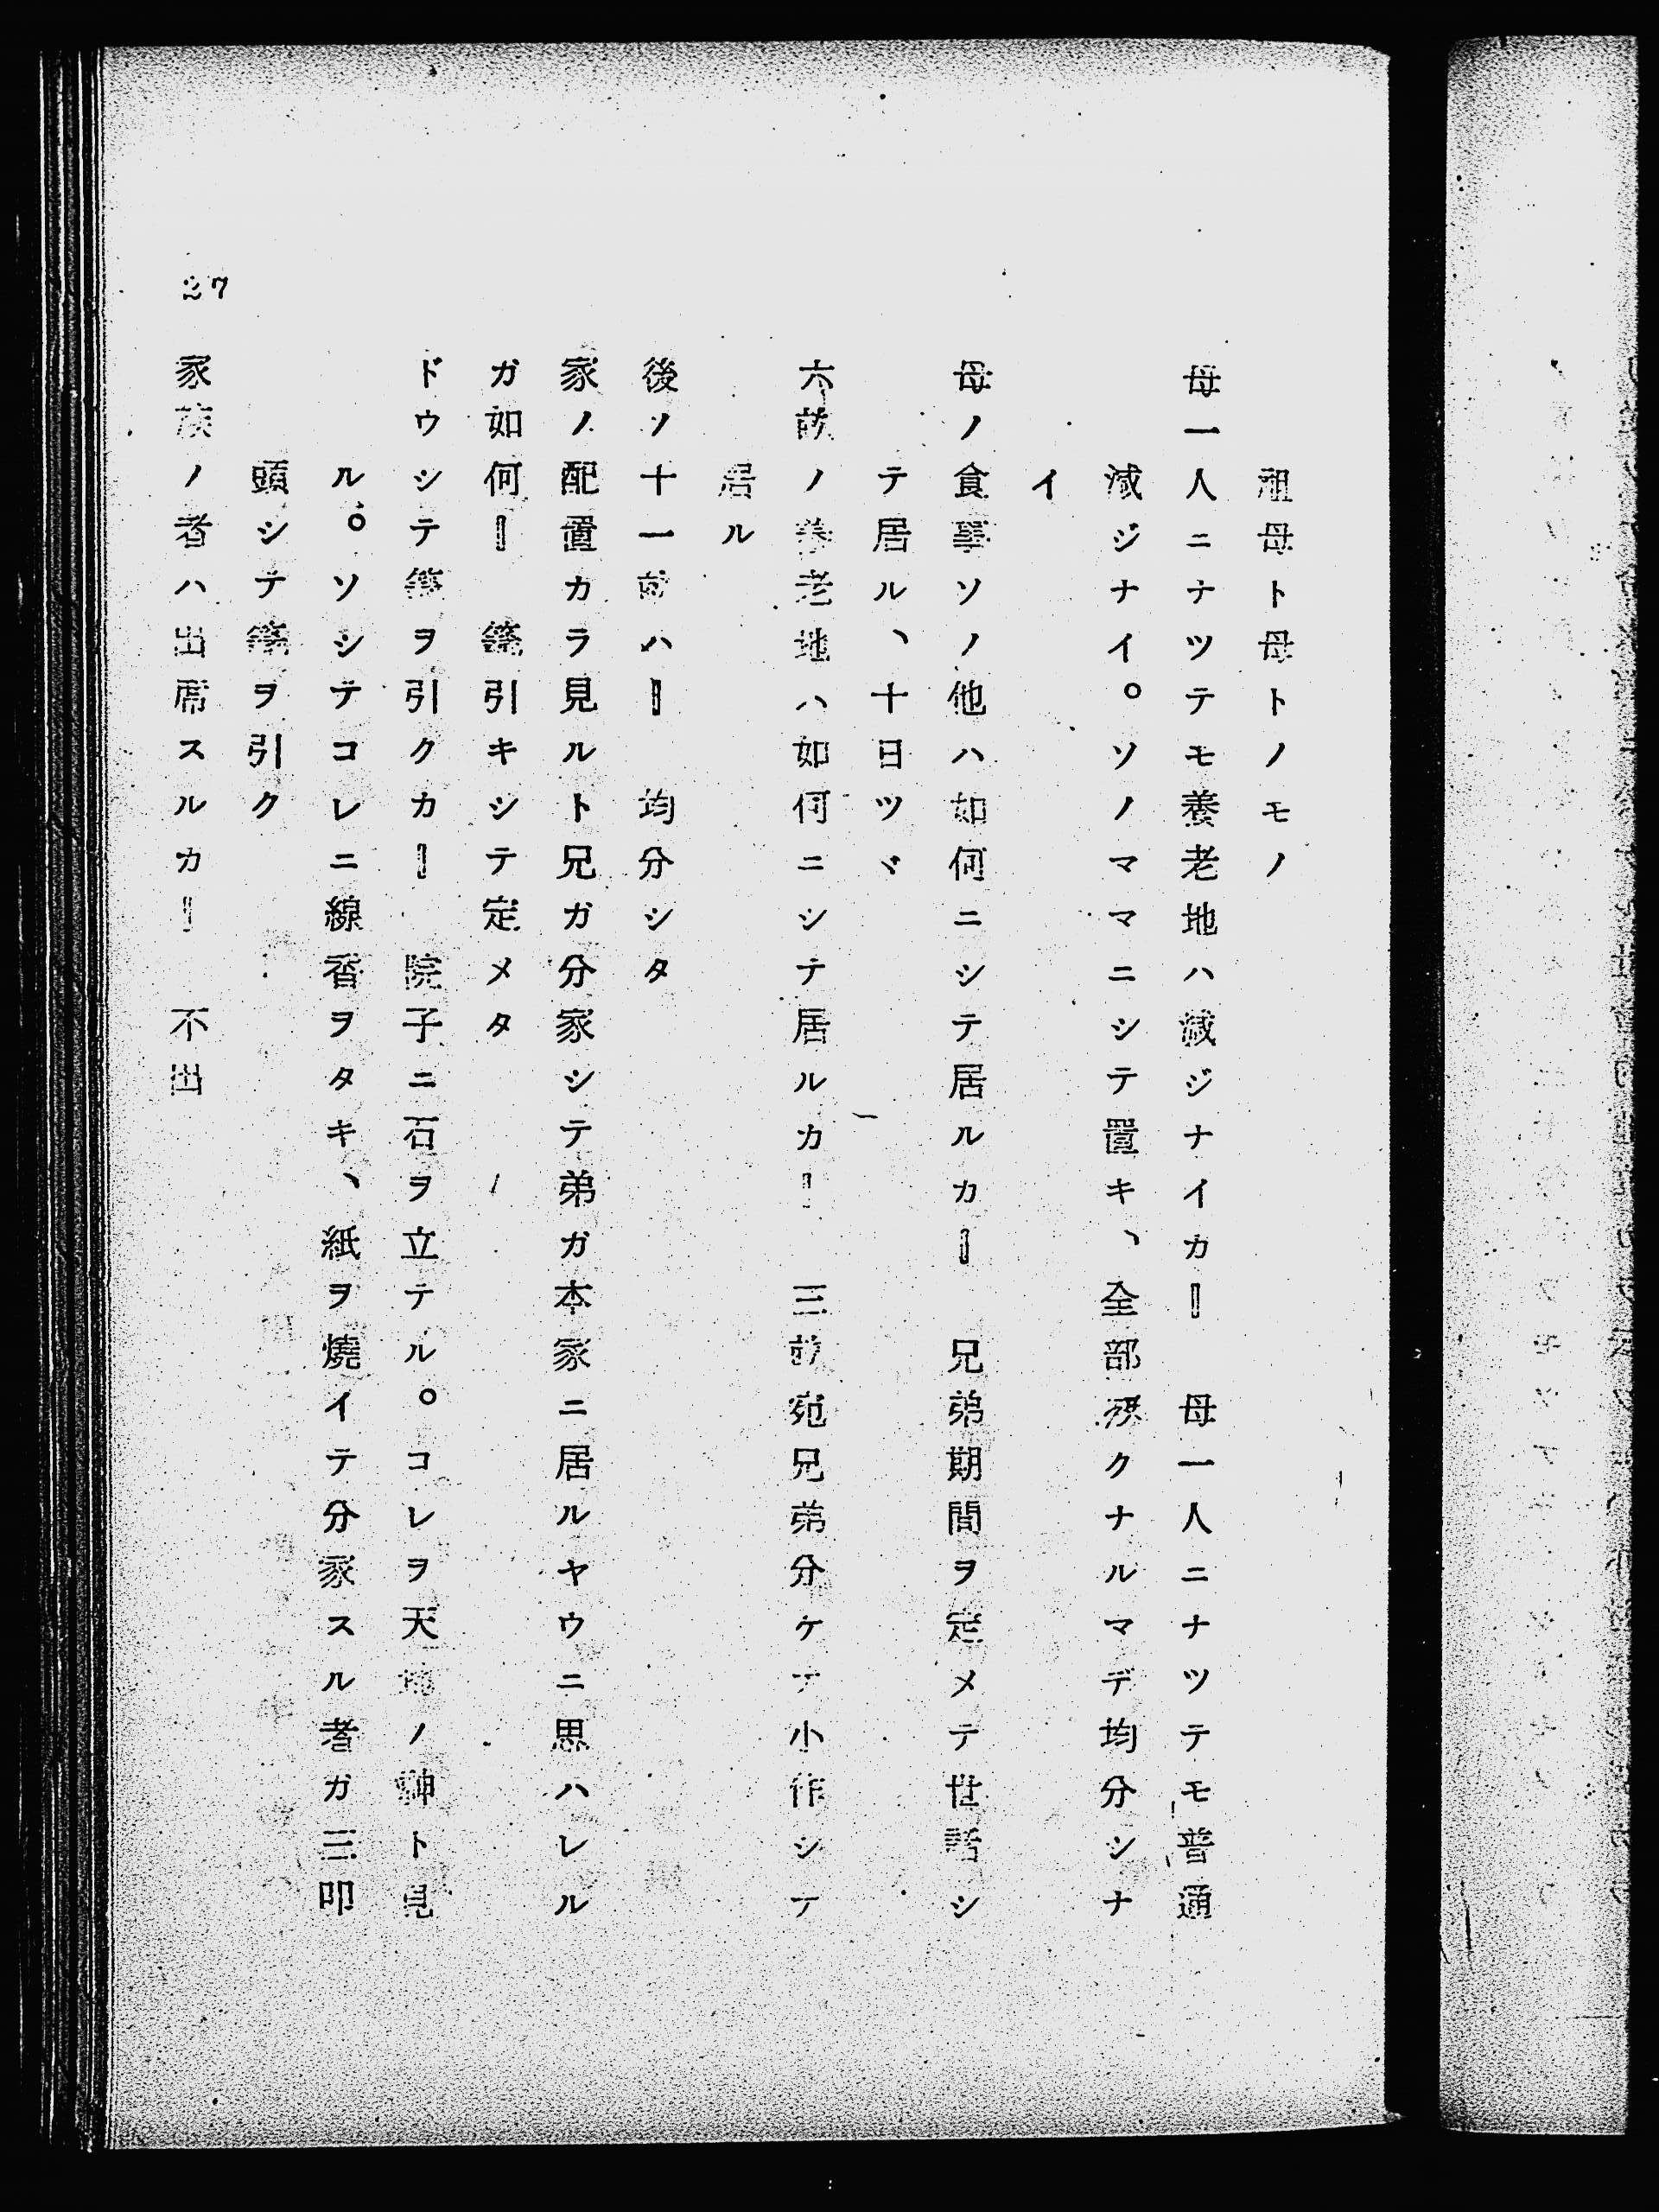 祖母ト母トノモノ
母一人ニナツテモ養老地ハ減ジナイカ― 母一人ニナツテモ普通
減ジナイ。ソノママニシテ置キ、全部歿クナルマデ均分シナ
イ
母ノ食事ソノ他ハ如何ニシテ居ルカ― 兄弟期間ヲ定メテ世話シ
テ居ル、十日ツヾ
六畝ノ養老地ハ如何ニシテ居ルカ― 三畝宛兄弟分ケテ小作シテ
居ル
後ソ十一畝ハ― 均分シタ
家ノ配置カラ見ルト兄ガ分家シテ弟ガ本家ニ居ルヤウニ思ハレル
ガ如何― 籤引キシテ定メタ
ドウシテ籤ヲ引クカ― 院子ニ石ヲ立テル。コレヲ天地ノ神ト見
ル。ソシテコレニ線香ヲタキ、紙ヲ燒イテ分家スル者ガ三叩
頭シテ籤ヲ引ク
家族ノ者ハ出席スルカ― 不出
27